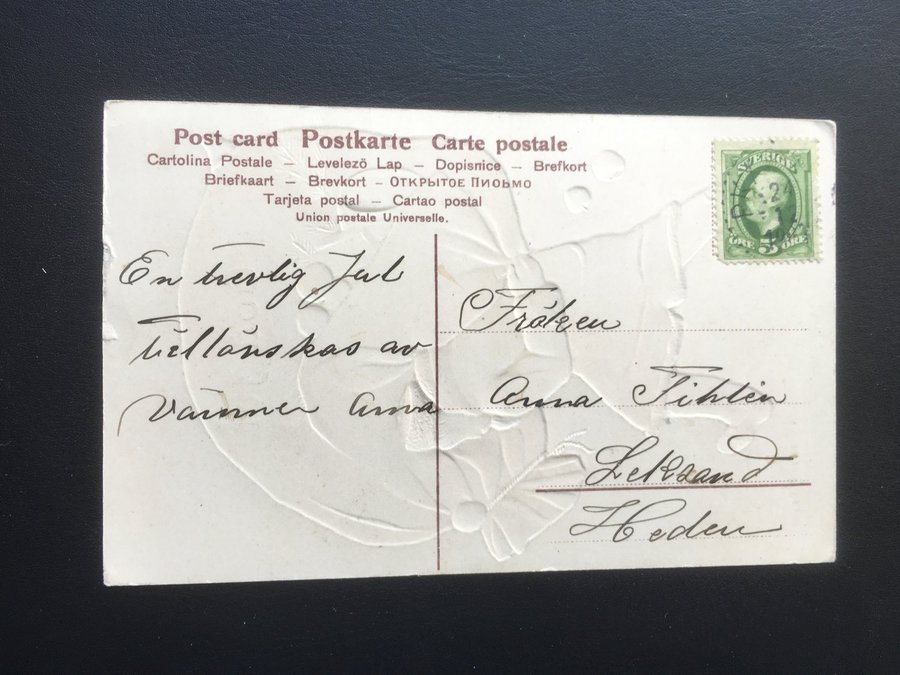 Post card Postkarte Carte postale
Cartolina Postale – Levelező Lap – Dopisnice – Brefkort
Briefkaart – Brevkort – ОТКРЫТОЕ ПИСЬМО
Tarjeta postal – Cartao postal
Union postale Universelle.
SVERIGE
5
ÖRE ÖRE
En trevlig Jul
tillönskas av
vännen Anna
Fröken
Anna Tihlén
Leksand
Heden